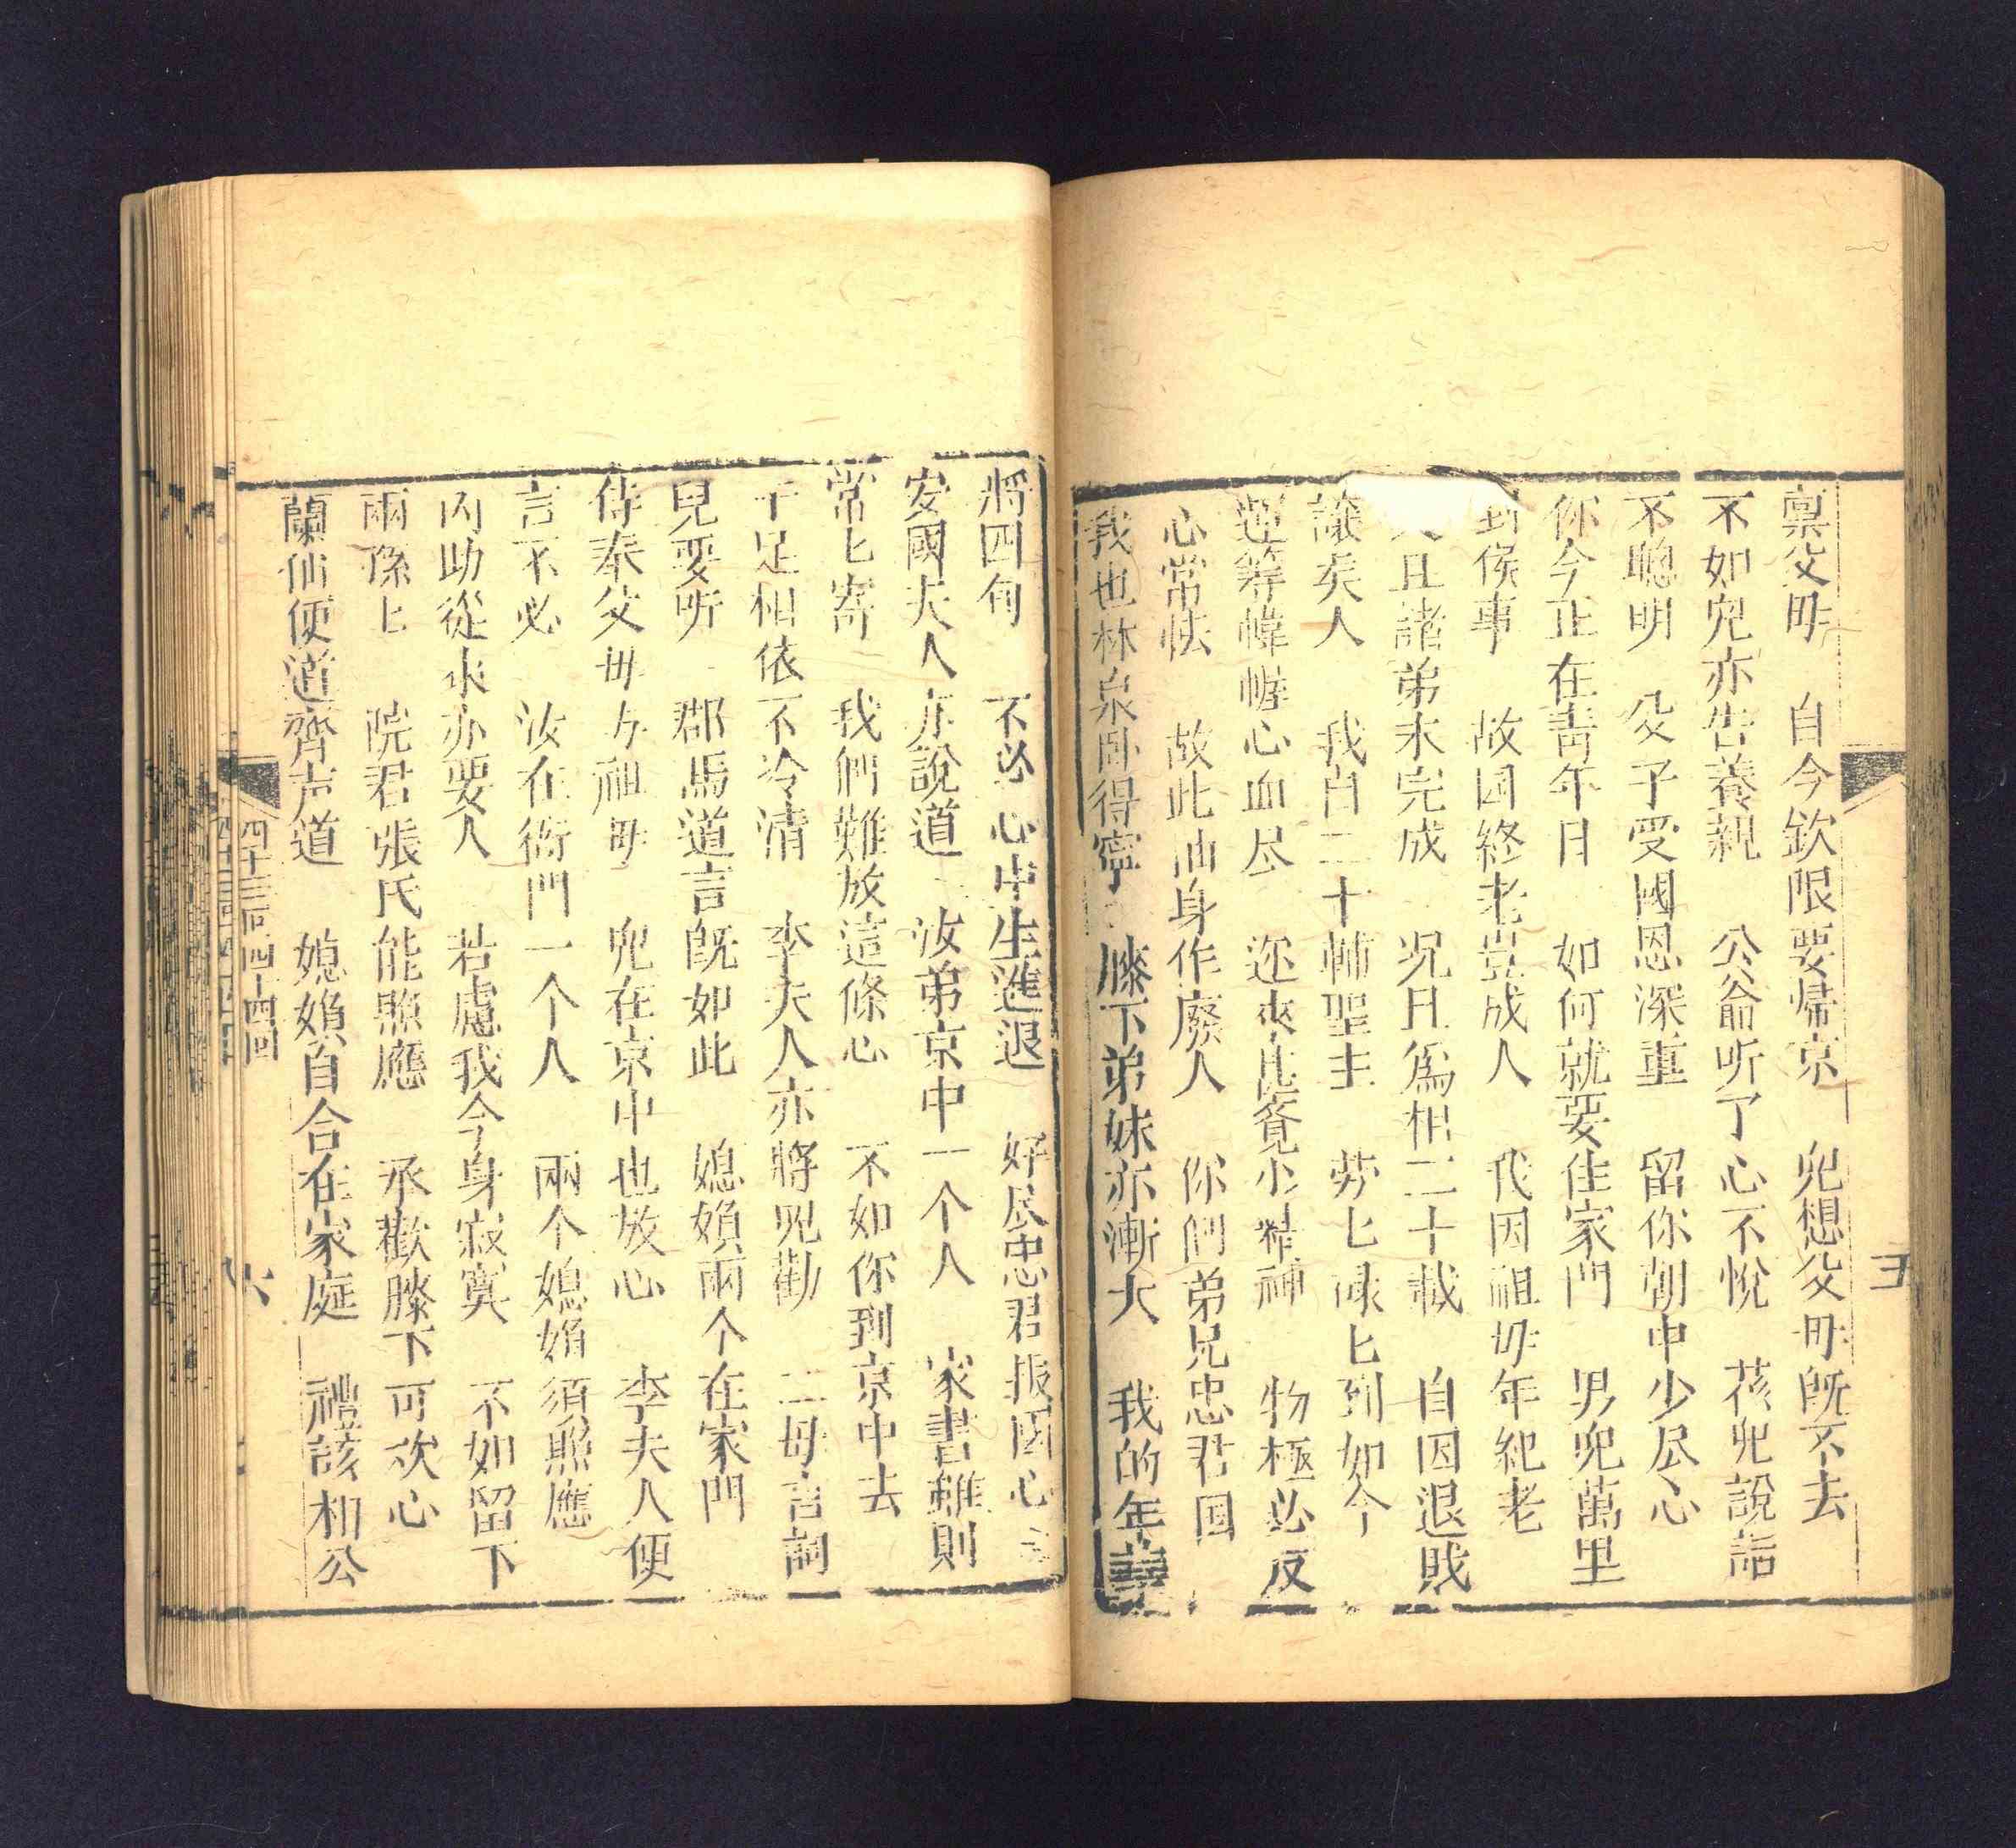 禀父母　自今欽限要帰京　兒想父母既不去
不如兒亦告養親　公爺听了心不悅　孩兒說話
不聰明　父子受國恩深重　留你朝中少尽心
你今正在青年日　如何就要住家門　男兒萬里
封侯事　故囯終老豈成人　我因祖母年紀老
且諸弟未完成　况且為相二十載　自因退賎
讓矣人　我自二十輔聖主　劳匕碌匕到如今
運筹幃幄心血尽　迩來甚覺少精神　物極必反
心常怯　故此抽身作廢人　你們弟兄忠君囯
我也林泉卧得寧　膝下弟妹亦漸大　我的年
將四旬　不必心中生進退　好尽忠君报囯心
安國夫人亦說道　汝弟京中一个人　家書雖則
常匕寄　我們難放這條心　不如你到京中去
手足相依不冷清　李夫人亦將兒勸　二母言詞
兒要听　郡馬道言既如此　媳婦兩个在家門
侍奉父母与祖母　兒在京中也放心　李夫人便
言不必　汝在衙門一个人　兩个媳婦須照應
內助從來亦要人　若慮我今身寂寞　不如留下
兩孫匕　院君張氏能照應　承歡膝下可欢心
蘭仙便道齊声道　媳婦自合在家庭　禮該相公
四十三回四十四回
六
五